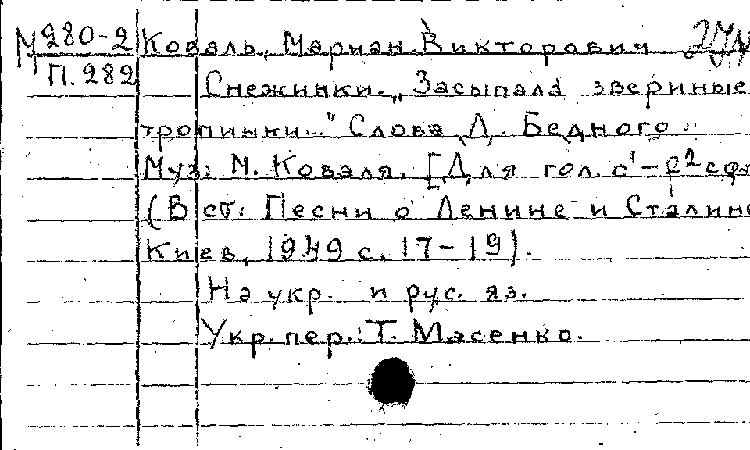 М 280-2 Коваль, Мариан Викторович
П. 282
Снежинки. „Засыпала звериные
тропинки..." Слова Д. Бедного.
Муз: М. Коваля. [Для гол. с¹-
(В сб: Песни о Ленине и Сталине
Киев, 1949 с. 17-19).
На укр. и рус. яз.
Укр. пер.: Т. Масенко.